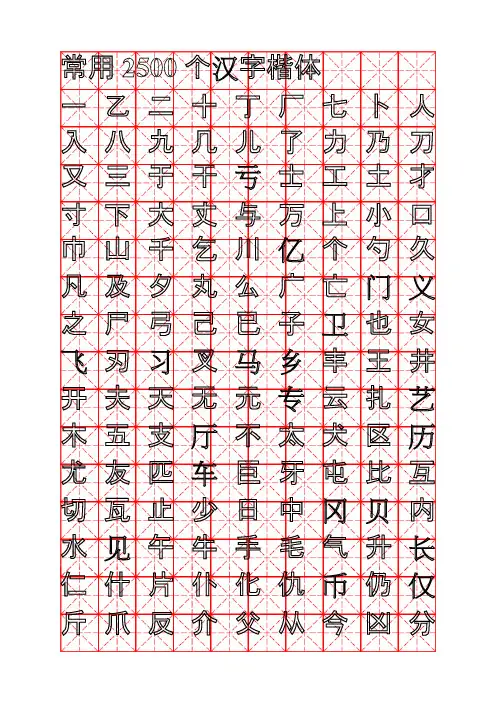 常用 2500 个汉字楷体
一乙二十丁厂七卜人
入八九几儿了力乃刀
又三于干亏士工土才
寸下大丈与万上小口
巾山千乞川亿个勺久
凡及夕丸么广亡门义
之尸弓己已子卫也女
飞刃习叉马乡丰王井
开夫天无元专云扎艺
木五支厅不太犬区历
尤友匹车巨牙屯比互
切瓦止少日中冈贝内
水见午牛手毛气升长
仁什片仆化仇币仍仅
斤爪反介父从今凶分